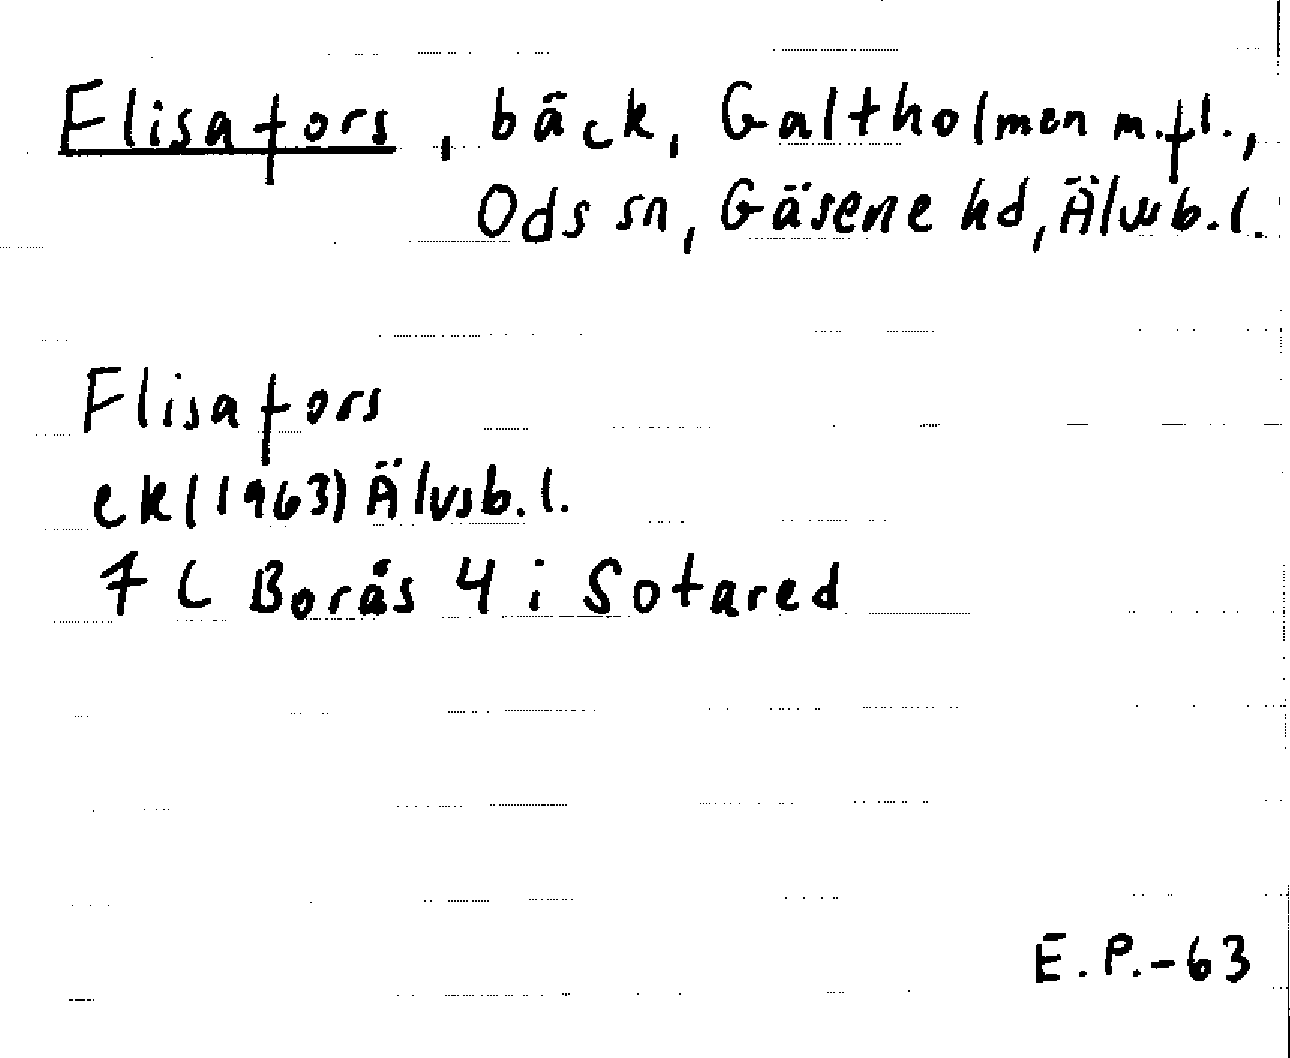 Elisafors, bäck, Galtholmen m.fl.,
Ods sn, Gäsene hd, Älvsb.l.
Elisafors
ek (1963) Älvsb.l.
7 C Borås 4 i Sotared
E.P.-63